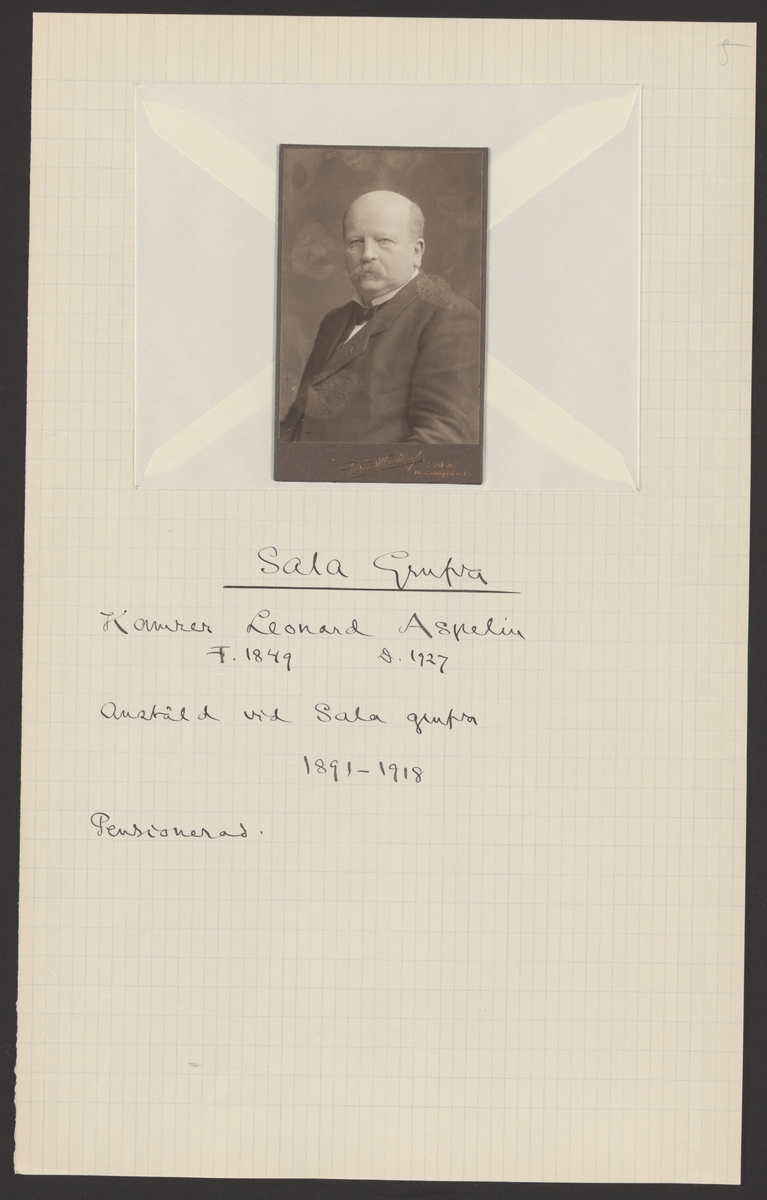 5
Sala Grufva
Kamrer Leonard Aspelin
F. 1849 D. 1927
Anstäld vid Sala grufva
1891-1918
Pensionerad.